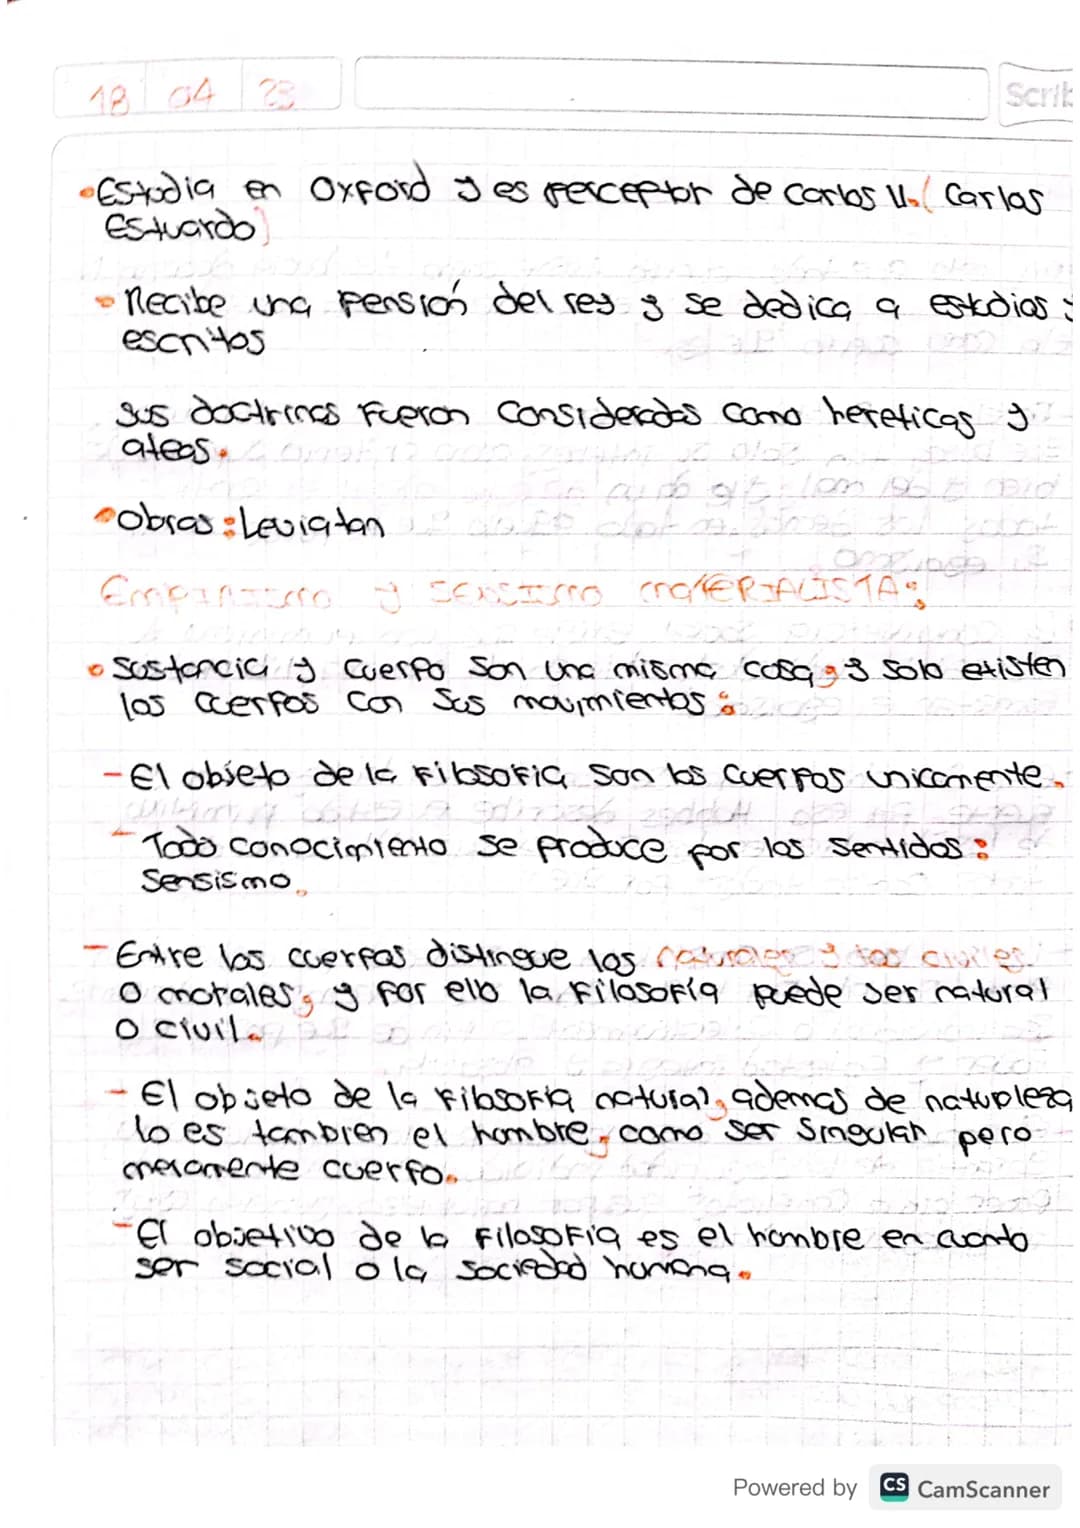 18 04 23
Scrib
•Estudia en Oxford y es perceptor de Carlos II. (Carlos
Estuardo)
• Recibe una pensión del rey y se dedica a estudios y
escritos
Sus doctrinas fueron consideradas como hereticas y
ateas.
•Obras: Leviatan
Empirismo y SENSISMO MATERIALISTA:
• Sustancia y cuerpo son una misma cosa, y solo existen
los cuerpos con sus movimientos:
- El objeto de la filosofia son los cuerpos unicamente.
- Todo conocimiento se produce por los sentidos:
Sensismo.
- Entre los cuerpos distingue los naturales y los civiles
o morales, y por ello la filosofía puede ser natural
o civil.
- El objeto de la filosofia natural, ademas de naturaleza
lo es tambien el hombre, como ser singular pero
meramente cuerpo.
- El objetivo de la filosofia es el hombre en cuanto
ser social o la sociedad humana.
Powered by CS CamScanner